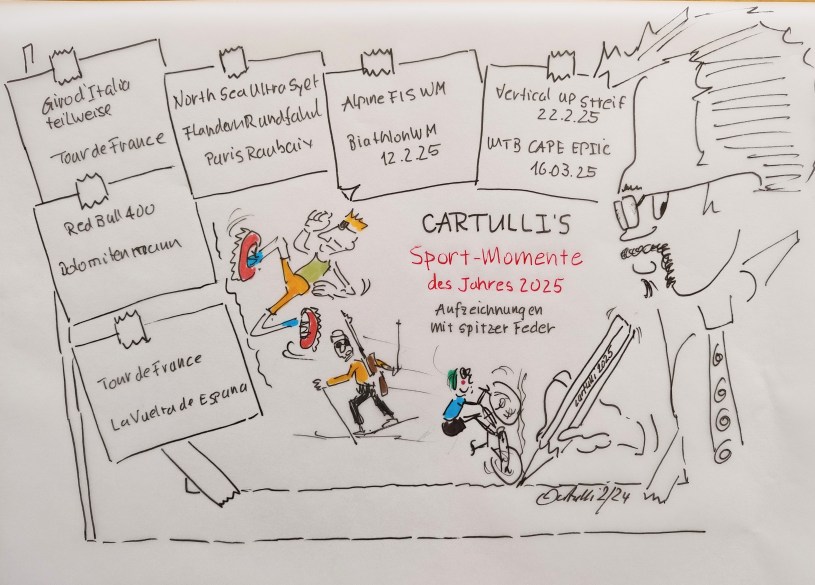 Giro d'Italia
teilweise
Tour de France
North Sea Ultro Syet
Flandern Rundfahrt
Paris Raubaix
Alpine FIS WM
Biathlon WM
12.2.25
Vertical up Streif
22.2.25
MTB CAPE EPIIC
16.03.25
Red Bull 400
Dolomitenmann
Tour de France
La Vuelta de Espana
CARTULLI'S
Sport-Momente
des Jahres 2025
Aufzeichnungen
mit spitzer Feder
cartulli 2025
Cartulli 2/24